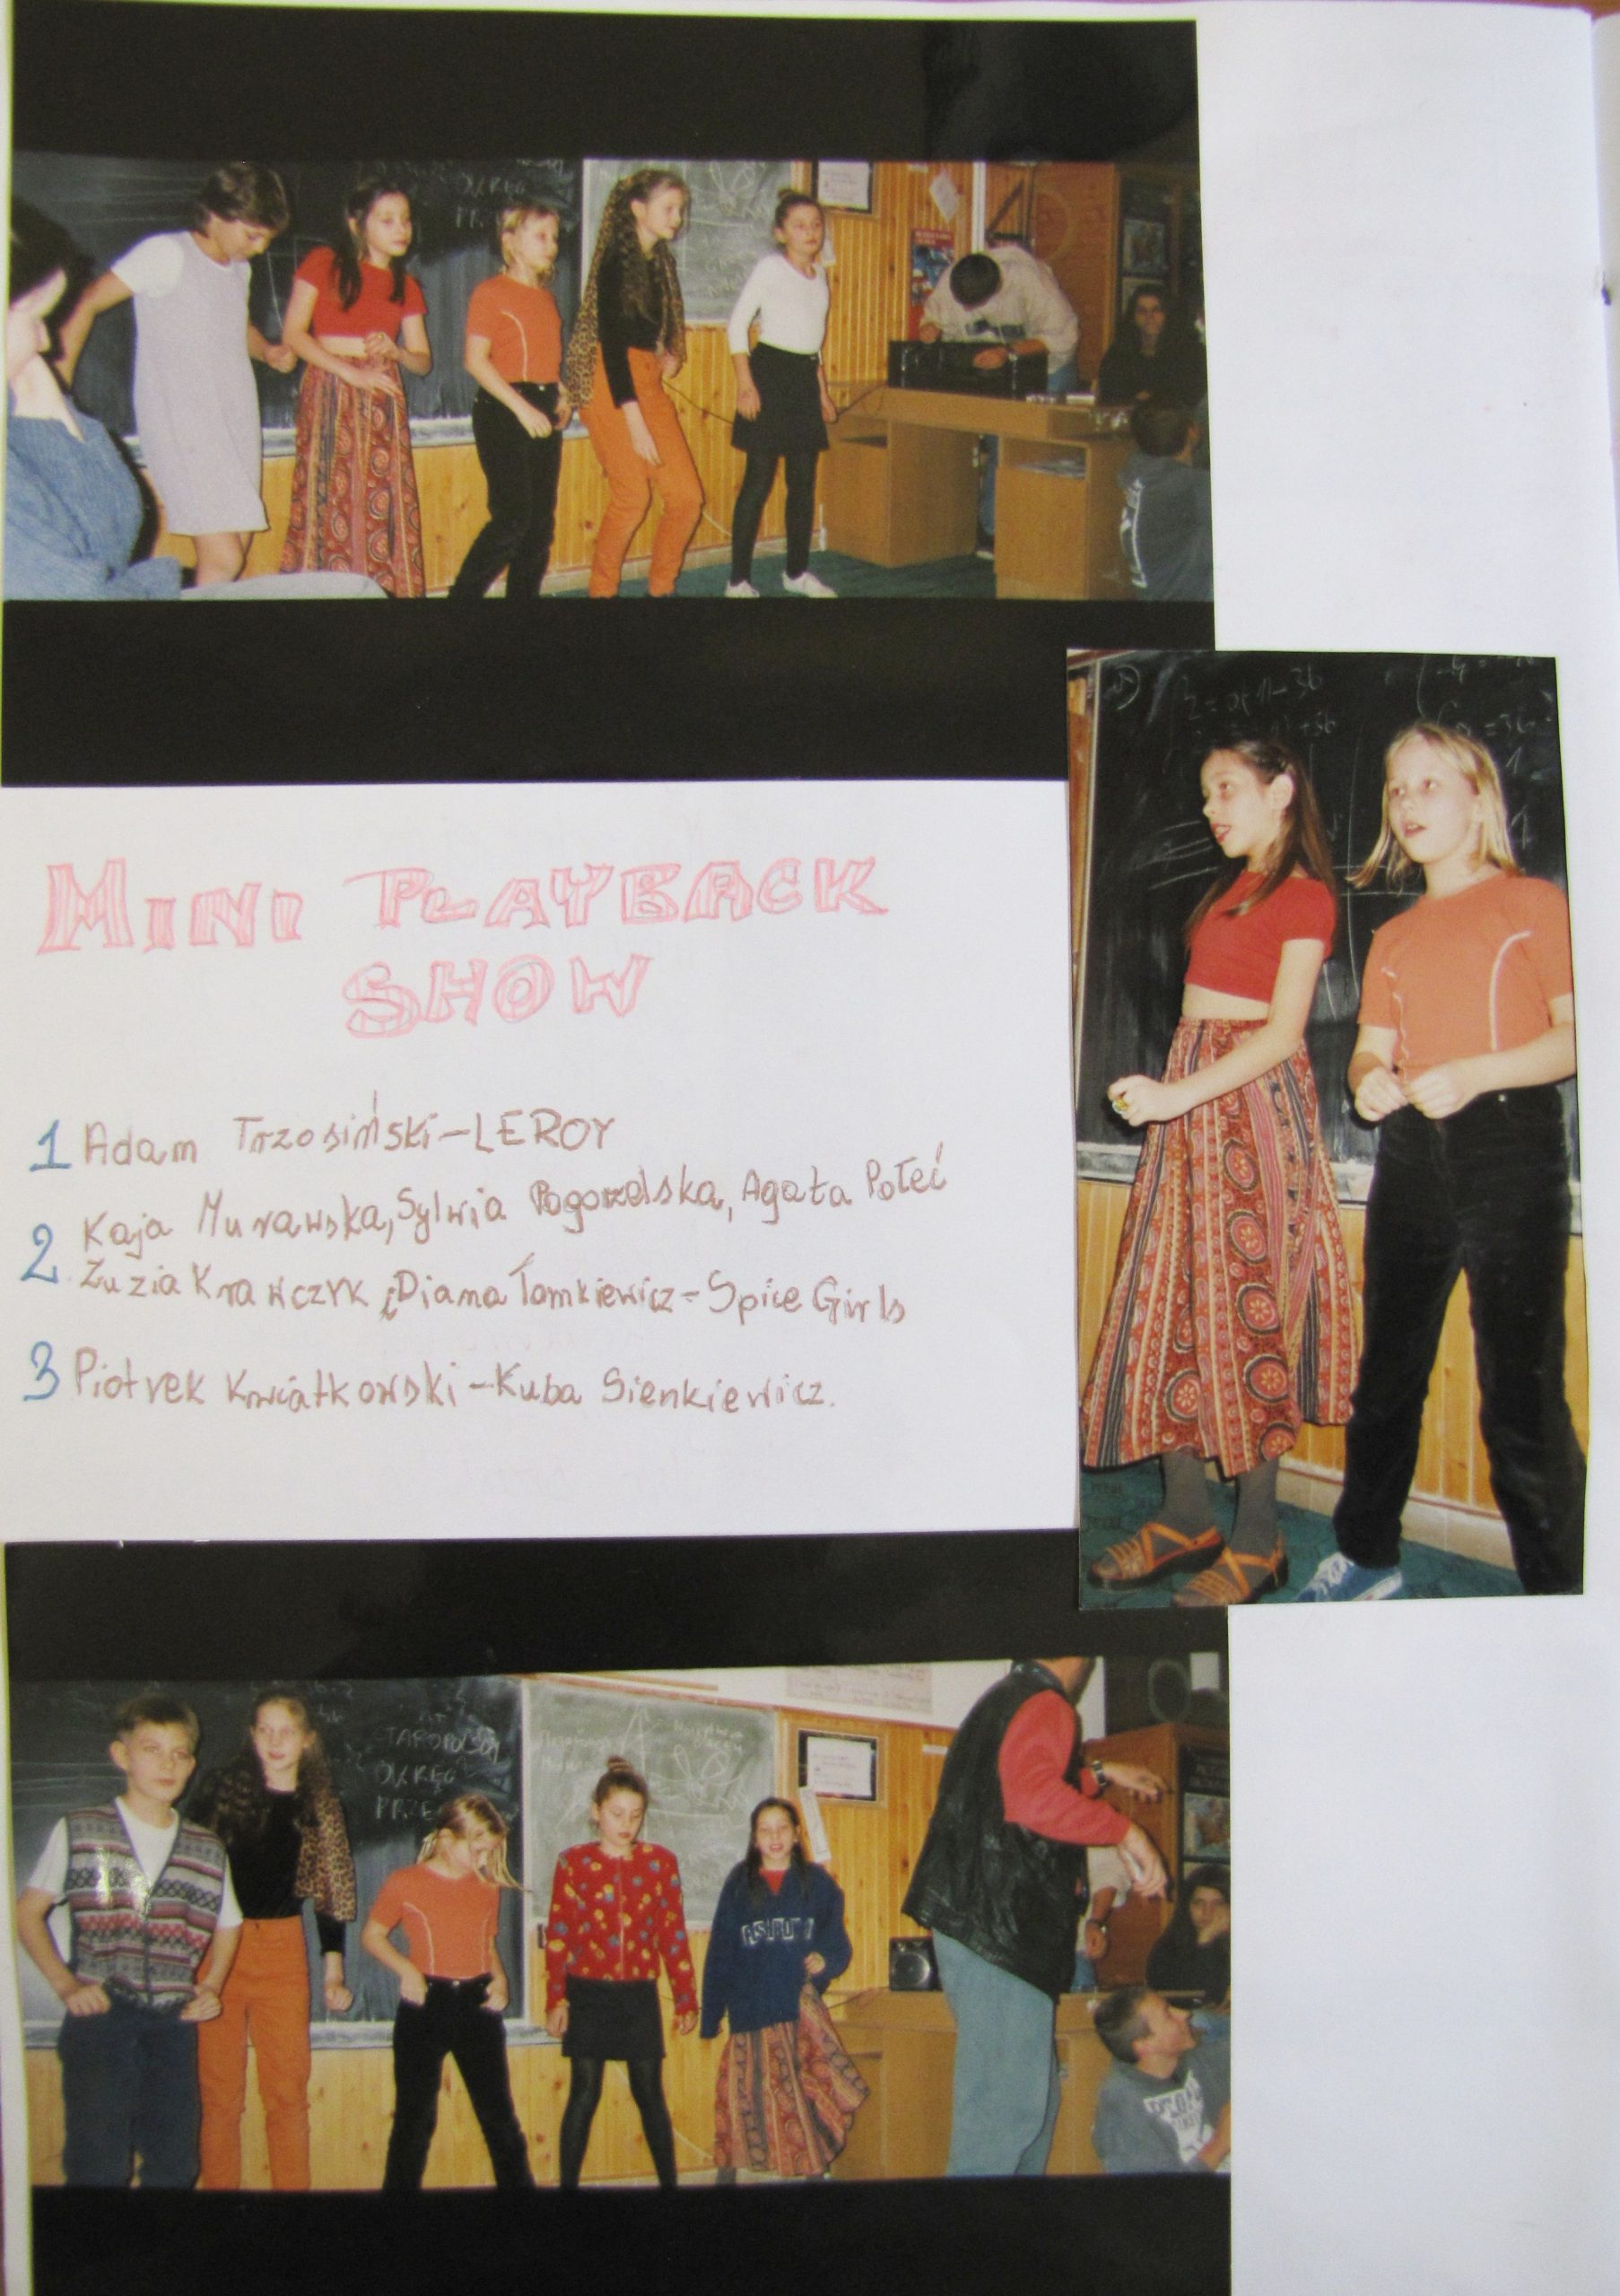 OKRĘG
PRZ
MINI PLAYBACK
SHOW
1 Adam Trzosiński-LEROY
2 Kaja Murawska, Sylwia Pogorzelska, Agata Połeć
Zuzia Krawczyk i Diana Tomkiewicz-Spice Girls
3 Piotrek Kwiatkowski-Kuba Sienkiewicz.
STAROPOLSKI
OKRĘG
PRZE